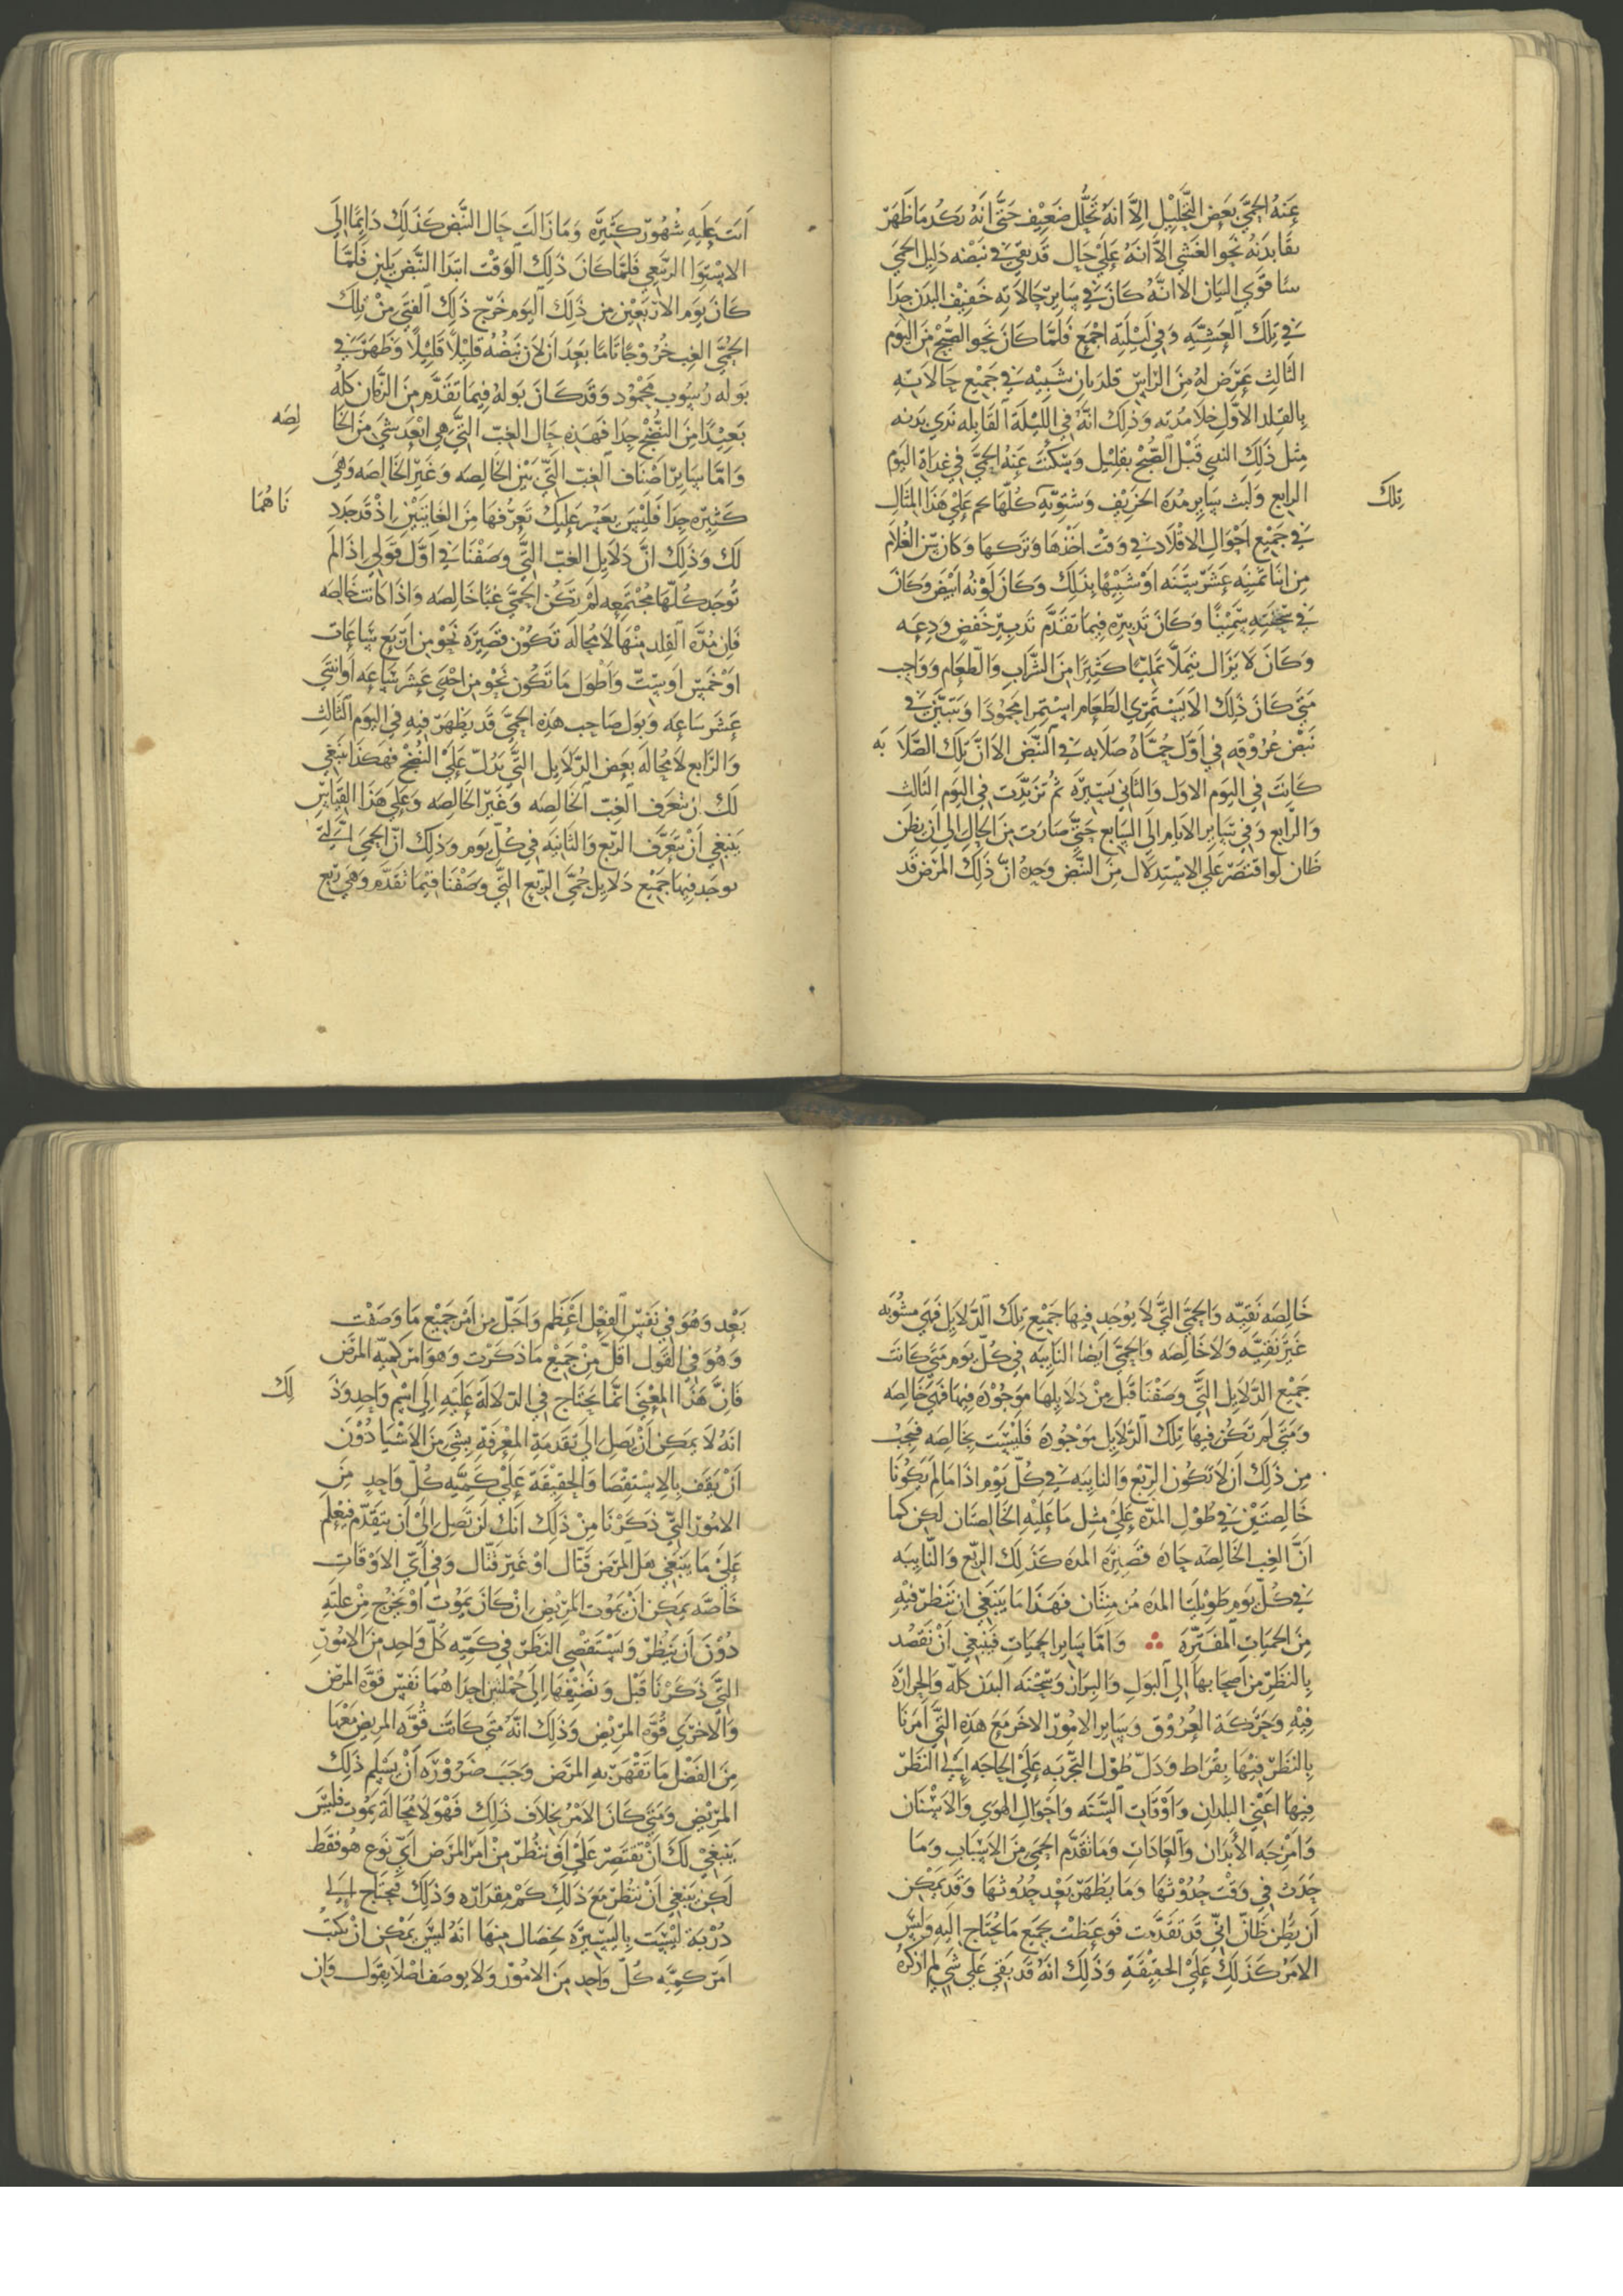 عنه الحمى بعض التحليل الا انه تحلل ضعيف حتى انه يكد ما ظهر
نقا بدنه نحو العشي الا انه على حال قد بقي في نبضه دليل الحمى
بينا قوي البيان الا انه كان في ساير حالاته خفيف البدن جدا
في تلك العشيه وفي ليلته اجمع فلما كان نحو الصبح من اليوم
الثالث عرض له من الراس قلد بان شبيه في جميع حالاته
بالقلد الاول خلا مدته وذلك انه في الليلة القابله ندي بدنه
مثل ذلك الندي قبل الصبح بقليل وسكنت عنه الحمى في غداة اليوم
الرابع ولبث ساير مدة الخريف وشتويه كلها يحم على هذا المثال
تلك
في جميع احوال الاقلاد في وقت اخذها وتركها وكان سن الغلام
من ابنا ثمنيه عشر سنه او شبيها بذلك وكان لونه ابيض وكان
في سحنته سمينا وكان تدبيره فيما تقدم تدبير خفض ودعه
وكان لا يزال يتملا تمليا كثيرا من الشراب والطعام وواجب
متى كان ذلك الا يستمري الطعام استمرا محمودا وتبين في
نبض عروقه في اول حماه صلابه في النبض الا ان تلك الصلابه
كانت في اليوم الاول والثاني يسيره ثم تزيدت في اليوم الثالث
والرابع وفي ساير الايام الى السابع حتى صارت من الحال الى ان يظن
ظان لو اقتصر على الاستدلال من النبض وحده ان ذلك المرض قد
اتت عليه شهور كثيره وما زالت حال النبض كذلك دايما الى
الاستوا الربيعي فلما كان ذلك الوقت ابتدا النبض يلين فلما
كان يوم الاربعين من ذلك اليوم خرج ذلك الفتى من تلك
الحمى الغب خروجا تاما بعد ان لان نبضه قليلا قليلا وظهر في
بوله رسوب محمود وقد كان بوله فيما تقدم من الزمان كله
بعيدا من النضج جدا فهذه حال الغب التي هي ابعد شي من الخالصه
واما ساير اصناف الغب التي بين الخالصه وغير الخالصه وهي
كثيره جدا فليس يعسر عليك تعرفها من الغايتين اذ قد حددناهما
لك وذلك ان دلايل الغب التي وصفنا في اول قولي اذا لم
توجد كلها مجتمعه لم تكن الحمى غبا خالصه واذا كانت خالصه
فان مدة القلد منها لا محاله تكون قصيره نحو من اربع ساعات
او خمس او ست واطول ما تكون نحو من احدى عشر ساعه او اثنتي
عشر ساعه وبول صاحب هذه الحمى قد يظهر فيه في اليوم الثالث
والرابع لا محاله بعض الدلايل التي تدل على النضج فهكذا ينبغي
لك ان تتعرف الغب الخالصه وغير الخالصه وعلى هذا القياس
ينبغي ان تتعرف الربع والنايبه في كل يوم وذلك ان الحمى التي
يوجد فيها جميع دلايل حمى الربع التي وصفنا فيما تقدم وهي ربع
خالصه نقيه والحمى التي لا يوجد فيها جميع تلك الدلايل فهي مشوبه
غير نقيه ولا خالصه والحمى ايضا النايبه في كل يوم متى كانت
جميع الدلايل التي وصفنا قبل من دلايلها موجوده فيها فهي خالصه
ومتى لم تكن فيها تلك الدلايل موجوده فليست بخالصه فيجب
من ذلك ان لا تكون الربع والنايبه في كل يوم اذا ما لم يكونا
خالصتين في طول المده على مثل ما عليه الخالصتان لكن كما
ان الغب الخالصه حاده قصيره المده كذلك الربع والنايبه
في كل يوم طويلتا المده مزمنتان فهذا ما ينبغي ان تنظر فيه
من الحميات المفتره ∴ واما ساير الحميات فينبغي ان تقصد
بالنظر من اصحابها الى البول والبراز وسحنه البدن كله والحراره
فيه وحركة العروق وساير الامور الاخر مع هذه التي امرنا
بالنظر فيها بقراط ودل طول التجربه على الحاجه الى النظر
فيها اعني البلدان واوقات السنه واحوال الهوي والاسنان
وامزجه الابدان والعادات وما تقدم الحمى من الاسباب وما
حدث في وقت حدوثها وما يظهر بعد حدوثها وقد يمكن
ان يظن ظان اني قد تقدمت فوعظت بجميع ما يحتاج اليه وليس
الامر كذلك على الحقيقه وذلك انه قد بقي علي شي لم اذكره
بعد وهو في نفس الفعل اعظم واجل من امر جميع ما وصفت
وهو في القول اقل من جميع ما ذكرت وهو امر كميه المرض
فان هذا المعنى انما يحتاج في الدلالة عليه الى اسم واحد وذلك
انه لا يمكن ان يصل الى تقدمة المعرفة بشي من الاشيا دون
ان يقف بالاستقصا والحقيقة على كميه كل واحد من
الامور التي ذكرنا من ذلك انك لن تصل الى ان تتقدم فتعلم
على ما ينبغي هل المرض قتال او غير قتال وفي اي الاوقات
خاصه يمكن ان يموت المريض ان كان يموت او يخرج من علته
دون ان ينظر ويستقصي النظر في كميه كل واحد من الامور
التي ذكرنا قبل وتضيفها الى جملتين احداهما نفس قوة المرض
والاخرى قوه المريض وذلك انه متى كانت قوه المريض معها
من الفضل ما تقهر به المرض وجب ضرورة ان يسلم ذلك
المريض ومتى كان الامر بخلاف ذلك فهو لا محالة يموت فليس
ينبغي لك ان تقتصر على ان تنظر من امر المرض اي نوع هو فقط
لكن ينبغي ان تنظر مع ذلك كم مقداره وذلك يحتاج الى
دربة ليست باليسيره بخصال منها انه ليس يمكن ان يكتب
امر كميه كل واحد من الامور ولا يوصف اصلا بقول وان